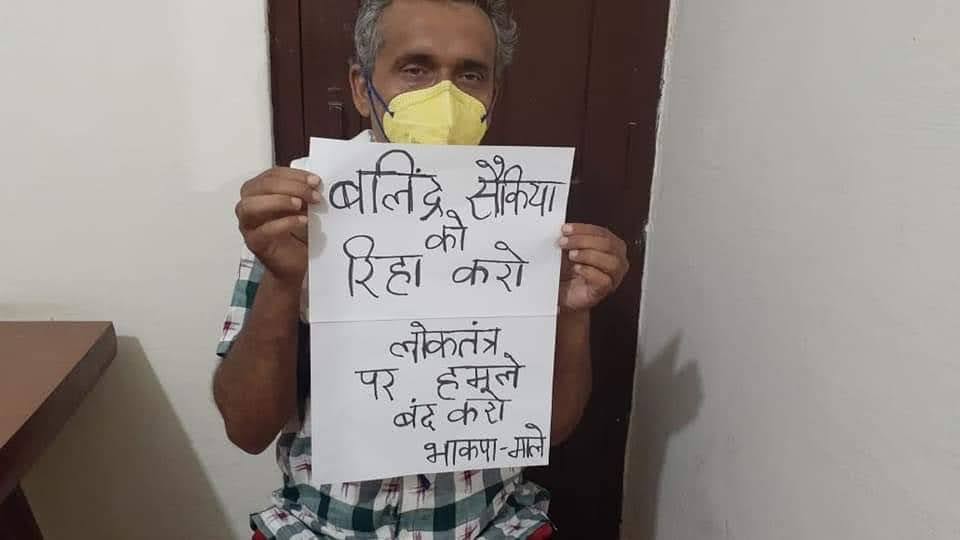 बलिंद्र सैकिया
को
रिहा करो
लोकतंत्र
पर हमले
बंद करो
भाकपा-माले